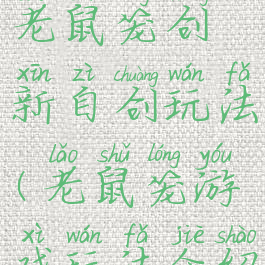 老鼠笼创
xīn zì chuàng wán fǎ
新自创玩法
lǎo shǔ lóng yóu
(老鼠笼游
xì wán fǎ jiè shào
戏玩法介绍